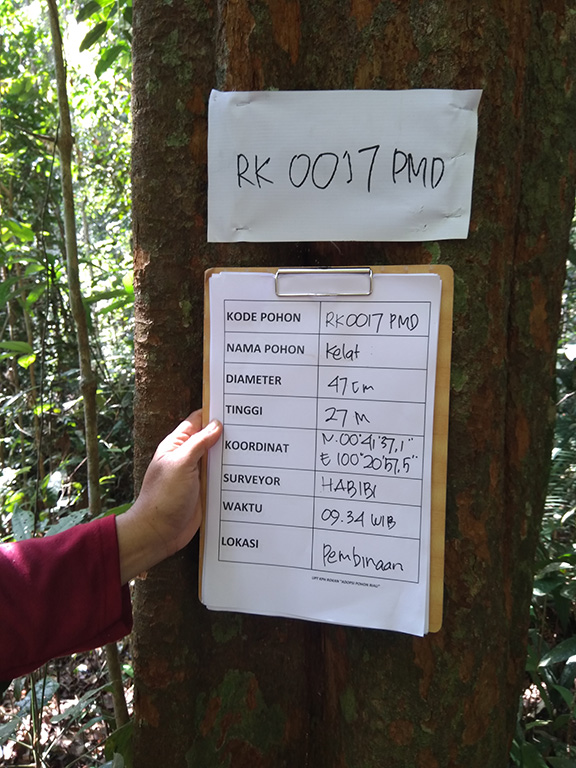 RK 0017 PMD
KODE POHON RK0017 PMD
NAMA POHON Kelat
DIAMETER 47 cm
TINGGI 27 M
KOORDINAT N. 00°41'37,1"
E 100°20'57,5"
SURVEYOR HABIBI
WAKTU 09.34 WIB
LOKASI Pembinaan
UPT KPH ROKAN "ADOPSI POHON RIAU"